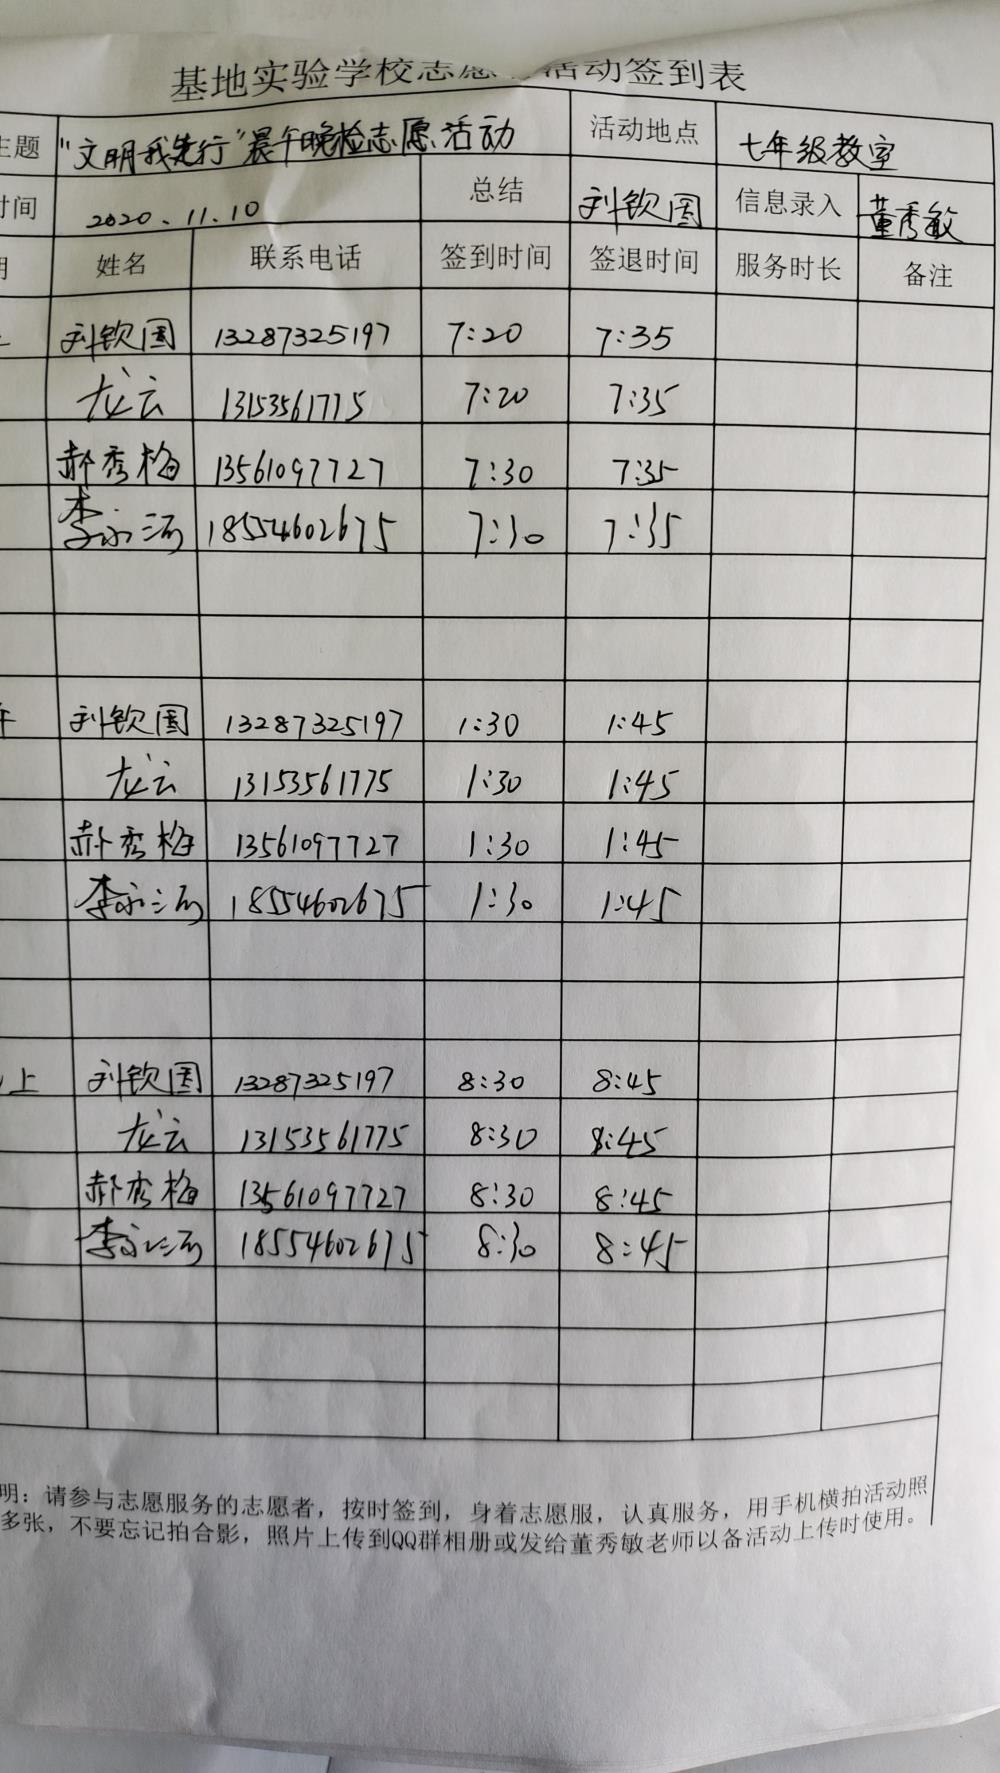 基地实验学校志愿 活动签到表
主题 “文明我先行”晨午晚检志愿活动 活动地点 七年级教室
时间 2020.11.10 总结 刘钦国 信息录入 董秀敏
姓名 联系电话 签到时间 签退时间 服务时长 备注
刘钦国 13287325197 7:20 7:35
龙云 13153561775 7:20 7:35
郝秀梅 13561097727 7:30 7:35
李永河 18554602675 7:30 7:35
午 刘钦国 13287325197 1:30 1:45
龙云 13153561775 1:30 1:45
郝秀梅 13561097727 1:30 1:45
李永河 18554602675 1:30 1:45
上 刘钦国 13287325197 8:30 8:45
龙云 13153561775 8:30 8:45
郝秀梅 13561097727 8:30 8:45
李永河 18554602675 8:30 8:45
明：请参与志愿服务的志愿者，按时签到，身着志愿服，认真服务，用手机横拍活动照
多张，不要忘记拍合影，照片上传到QQ群相册或发给董秀敏老师以备活动上传时使用。